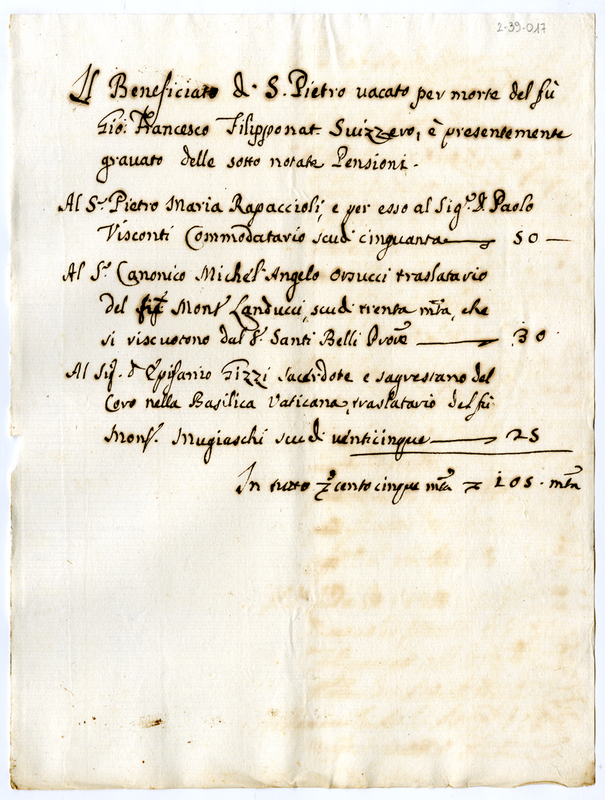 2-39-017
Il Beneficiato di S. Pietro vacato per morte del fù
Gio: Francesco Filipponat Suizzero, è presentemente
gravato delle sotto notate Pensioni.
Al Sr. Pietro Maria Rapaccioli, e per esso al Sigr. D. Paolo
Visconti Commodatario scudi cinquanta 50
Al Sr. Canonico Michel' Angelo Orsucci traslatario
del Monsr. Landucci, scudi trenta mta, che
si riscuotono dal Sr. Santi Belli 30
Al Sig. D. Epifanio Gizzi Sacerdote e sagrestano del
Coro nella Basilica Vaticana, traslatario del fù
Monsr. Mugiaschi scudi venticinque 25
In tutto centocinque mta 105. mta